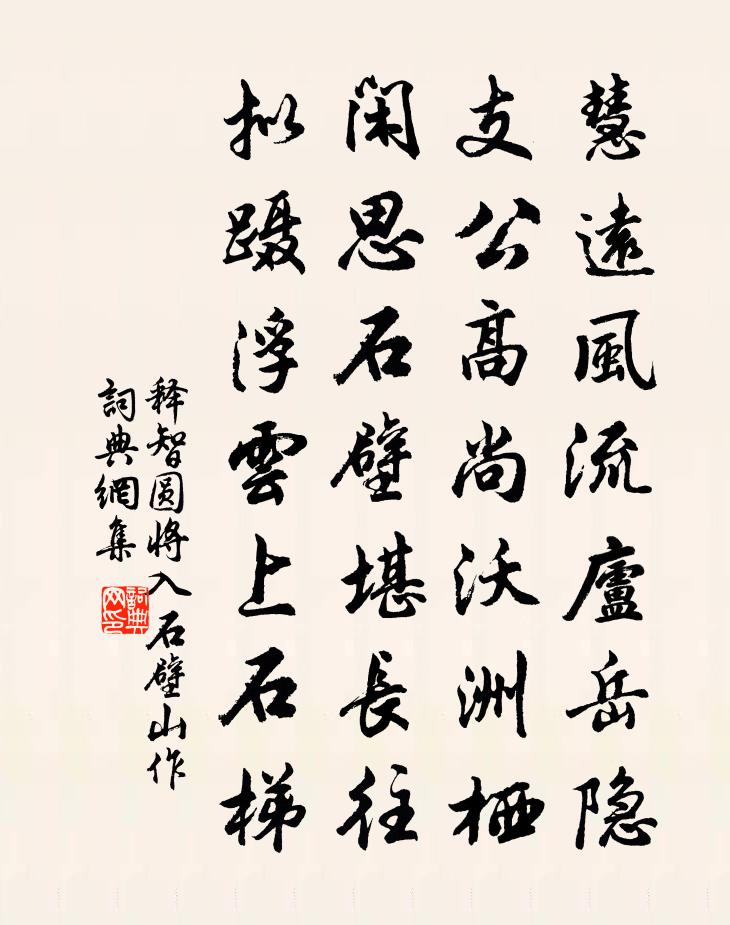 慧遠風流廬岳隐
支公高尚沃洲栖
閑思石壁堪長往
拟蹑浮雲上石梯
释智圆将入石壁山作
詞典網集
詞典网印